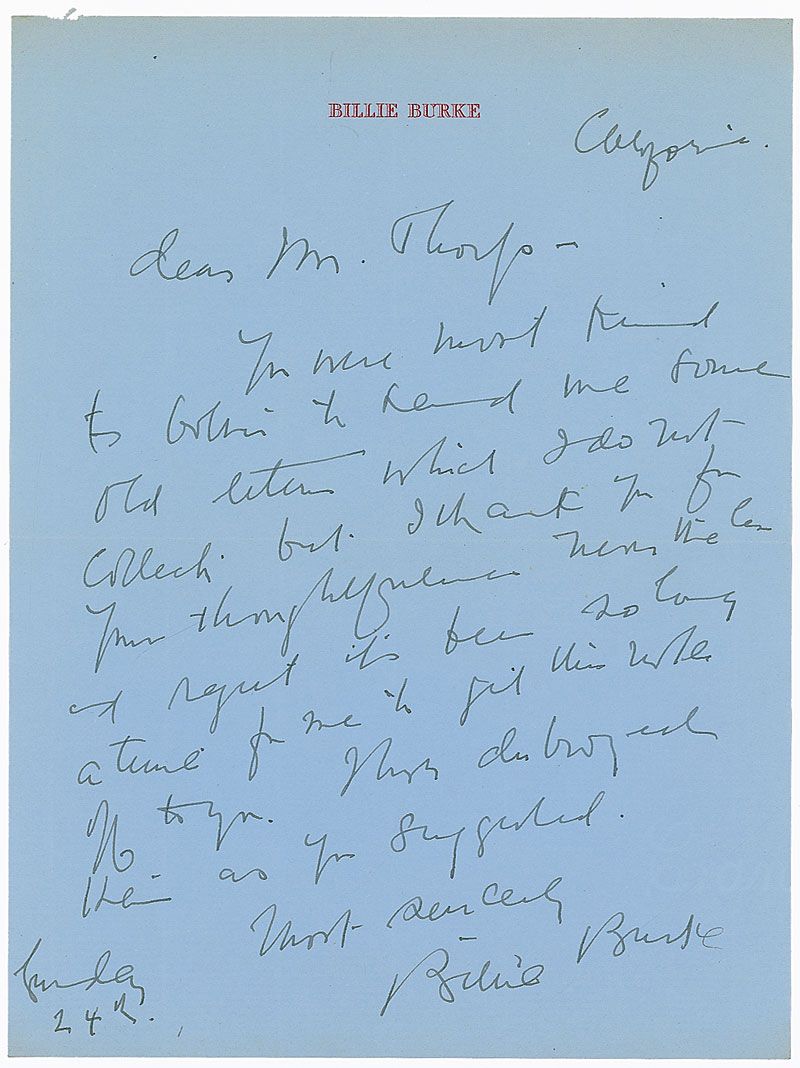 BILLIE BURKE
California.
dear Mr. Thorp –
You were most kind
to bother to send me some
old letters which I do not
collect but I thank you for
your thoughtfulness never the less
and regret it's been so long
a time for me to get this note
off to you. I have destroyed
them as you suggested.
Most sincerely
Billie Burke
Sunday
24th.